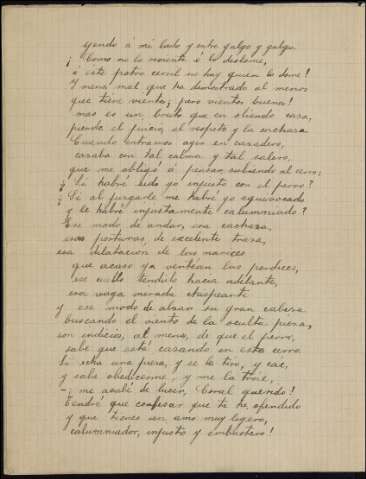 yendo á mi lado y entre galgo y galgo.
¡Como no lo reviente ó lo deslome,
á este potro cerril no hay quien lo dome!
Y menos mal que ha demostrado al menos
que tiene vientos; pero vientos buenos!
mas es un bruto que en oliendo caza,
pierde el juicio, el respeto y la cachaza.
Cuando entramos ayer en cazadero,
cazaba con tal calma y tal salero,
que me obligó á pensar, subiendo al cerro:
¿Si habré sido yo injusto con el perro?
¿Si al juzgarle me habré yo equivocado
y le habré injustamente calumniado?
Ese modo de andar, esa cachaza,
esas posturas, de excelente traza,
esa dilatación de las narices
que acaso ya ventean las perdices,
ese cuello tendido hacia adelante,
esa vaga mirada chispeante
y ese modo de alzar su gran cabeza
buscando el viento de la oculta pieza,
son indicios, al menos, de que el perro,
sabe que está cazando en este cerro.
Si echa una pieza, y se la tiro, y cae,
y sabe obedecerme, y me la trae,
— ¡me acabé de lucir, Coral querido!
Tendré que confesar que te he ofendido
y que tienes un amo muy ligero,
calumniador, injusto y embustero!